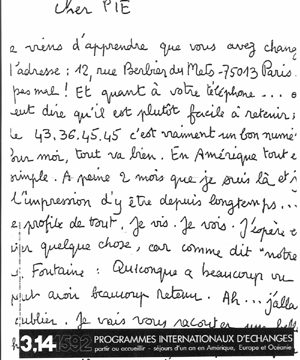 Cher PIE
e viens d'apprendre que vous avez chang
l'adresse : 12, rue Berbier du Mets - 75013 Paris.
pas mal ! Et quant à votre téléphone ... o
eut dire qu'il est plutôt facile à retenir ;
le 43.36.45.45 c'est vraiment un bon numé
our moi, tout va bien. En Amérique tout e
simple. A peine 2 mois que je suis là et j
l'impression d'y être depuis longtemps...
e profite de tout. Je vis. Je vois. J'espère
quelque chose, car comme dit "notre
Fontaine : Quiconque a beaucoup vu
peut avoir beaucoup retenu. Ah... j'alla
oublier. Je vais vous raconter
3.14 1592 PROGRAMMES INTERNATIONAUX D'ÉCHANGES
partir ou accueillir - séjours d'un an en Amérique, Europe et Océanie